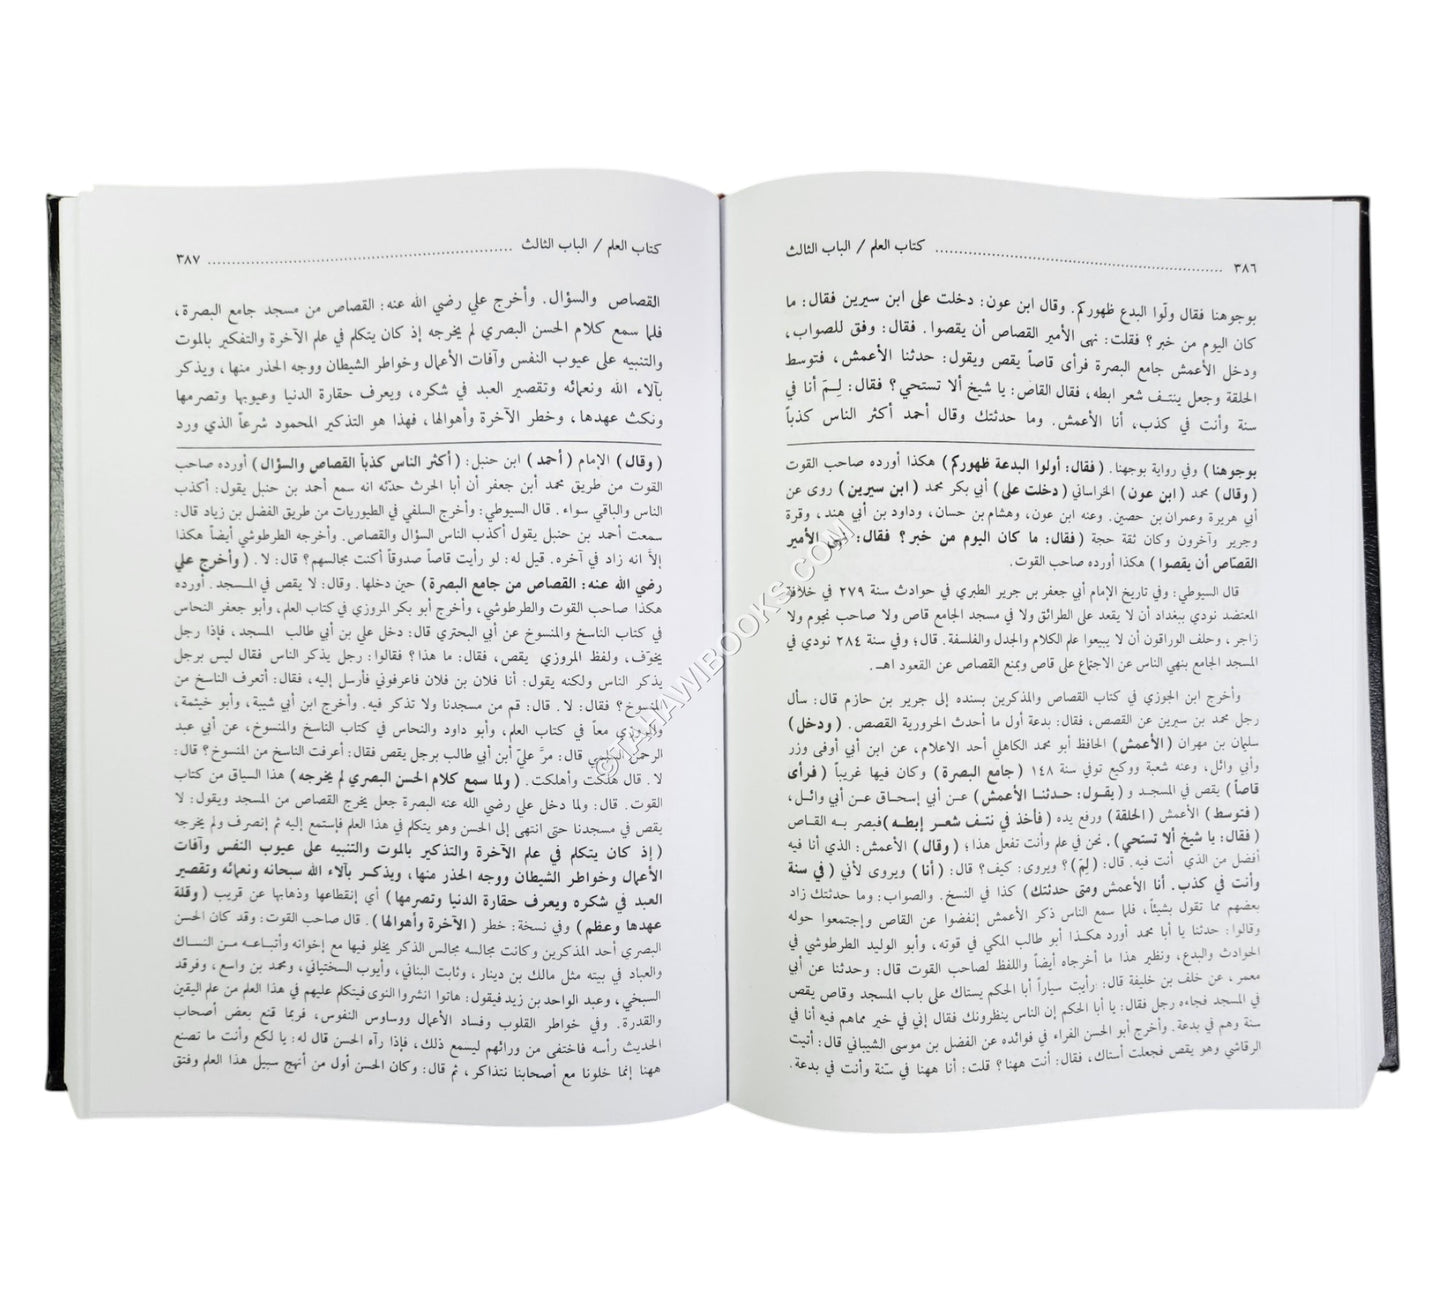 ٣٨٦ كتاب العلم / الباب الثالث
بوجوهنا فقال ولّوا البدع ظهوركم. وقال ابن عون: دخلت على ابن سيرين فقال: ما
كان اليوم من خبر؟ فقلت: نهى الأمير القصاص أن يقصوا. فقال: وفق للصواب،
ودخل الأعمش جامع البصرة فرأى قاصاً يقص ويقول: حدثنا الأعمش، فتوسط
الحلقة وجعل ينتف شعر ابطه، فقال القاص: يا شيخ ألا تستحي؟ فقال: لِمَ أنا في
سنة وأنت في كذب، أنا الأعمش. وما حدثتك وقال أحمد أكثر الناس كذباً
بوجوهنا) وفي رواية بوجهنا. (فقال: أولوا البدعة ظهوركم) هكذا أورده صاحب القوت
(وقال) محمد (ابن عون) الخراساني (دخلت على) أبي بكر محمد (ابن سيرين) روى عن
أبي هريرة وعمران بن حصين. وعنه ابن عون، وهشام بن حسان، وداود بن أبي هند، وقرة
وجرير وآخرون وكان ثقة حجة (فقال: ما كان اليوم من خبر؟ فقال: نهى الأمير
القصّاص أن يقصوا) هكذا أورده صاحب القوت.
قال السيوطي: وفي تاريخ الإمام أبي جعفر بن جرير الطبري في حوادث سنة ٢٧٩ في خلافة
المعتضد نودي ببغداد أن لا يقعد على الطرائق ولا في مسجد الجامع قاص ولا صاحب نجوم ولا
زاجر، وحلف الوراقون أن لا يبيعوا علم الكلام والجدل والفلسفة. قال: وفي سنة ٢٨٤ نودي في
المسجد الجامع بنهي الناس عن الاجتماع على قاص وبمنع القصاص عن القعود اهـ.
وأخرج ابن الجوزي في كتاب القصاص والمذكرين بسنده إلى جرير بن حازم قال: سأل
رجل محمد بن سيرين عن القصص، فقال: بدعة أول ما أحدث الحرورية القصص. (ودخل)
سليمان بن مهران (الأعمش) الحافظ أبو محمد الكاهلي أحد الاعلام، عن ابن أبي أوفى وزر
وأبي وائل، وعنه شعبة ووكيع توفي سنة ١٤٨ (جامع البصرة) وكان فيها غريباً (فرأى
قاصاً) يقص في المسجد و (يقول: حدثنا الأعمش) عن أبي إسحاق عن أبي وائل،
(فتوسط) الأعمش (الحلقة) ورفع يده (فأخذ في نتف شعر إبطه) فبصر به القاص
(فقال: يا شيخ ألا تستحي). نحن في علم وأنت تفعل هذا؛ (وقال) الأعمش: الذي أنا فيه
أفضل من الذي أنت فيه. قال: (لِمَ)؟ ويروى: كيف؟ قال: (أنا) ويروى لأني (في سنة
وأنت في كذب. أنا الأعمش ومتى حدثتك) كذا في النسخ. والصواب: وما حدثتك زاد
بعضهم مما تقول بشيئاً، فلما سمع الناس ذكر الأعمش إنفضوا عن القاص وإجتمعوا حوله
وقالوا: حدثنا يا أبا محمد أورد هكذا أبو طالب المكي في قوته، وأبو الوليد الطرطوشي في
الحوادث والبدع، ونظير هذا ما أخرجاه أيضاً واللفظ لصاحب القوت قال: وحدثنا عن أبي
معمر، عن خلف بن خليفة قال: رأيت سياراً أبا الحكم يستاك على باب المسجد وقاص يقص
في المسجد فجاءه رجل فقال: يا أبا الحكم إن الناس ينظرونك فقال إني في خير مماهم فيه أنا في
سنة وهم في بدعة. وأخرج أبو الحسن الفراء في فوائده عن الفضل بن موسى الشيباني قال: أتيت
الرقاشي وهو يقص فجعلت أستاك، فقال: أنت ههنا؟ قلت: أنا ههنا في سنّة وأنت في بدعة.
كتاب العلم / الباب الثالث ٣٨٧
القصاص والسؤال. وأخرج علي رضي الله عنه: القصاص من مسجد جامع البصرة،
فلما سمع كلام الحسن البصري لم يخرجه إذ كان يتكلم في علم الآخرة والتفكير بالموت
والتنبيه على عيوب النفس وآفات الأعمال وخواطر الشيطان ووجه الحذر منها، ويذكر
بآلاء الله ونعمائه وتقصير العبد في شكره، ويعرف حقارة الدنيا وعيوبها وتصرمها
ونكث عهدها، وخطر الآخرة وأهوالها، فهذا هو التذكير المحمود شرعاً الذي ورد
(وقال) الإمام (أحمد) ابن حنبل: (أكثر الناس كذباً القصاص والسؤال) أورده صاحب
القوت من طريق محمد أبن جعفر أن أبا الحرث حدثه انه سمع أحمد بن حنبل يقول: أكذب
الناس والباقي سواء. قال السيوطي: وأخرج السلفي في الطيوريات من طريق الفضل بن زياد قال:
سمعت أحمد بن حنبل يقول أكذب الناس السؤال والقصاص. وأخرجه الطرطوشي أيضاً هكذا
إلاَّ انه زاد في آخره. قيل له: لو رأيت قاصاً صدوقاً أكنت مجالسهم؟ قال: لا. (وأخرج علي
رضي الله عنه: القصاص من جامع البصرة) حين دخلها. وقال: لا يقص في المسجد. أورده
هكذا صاحب القوت والطرطوشي، وأخرج أبو بكر المروزي في كتاب العلم، وأبو جعفر النحاس
في كتاب الناسخ والمنسوخ عن أبي البحتري قال: دخل علي بن أبي طالب المسجد، فإذا رجل
يخوّف، ولفظ المروزي يقص، فقال: ما هذا؟ فقالوا: رجل يذكر الناس فقال ليس برجل
يذكر الناس ولكنه يقول: أنا فلان بن فلان فاعرفوني فأرسل إليه، فقال: أتعرف الناسخ من
المنسوخ؟ فقال: لا. قال: قم من مسجدنا ولا تذكر فيه. وأخرج ابن أبي شيبة، وأبو خيثمة،
والمروزي معاً في كتاب العلم، وأبو داود والنحاس في كتاب الناسخ والمنسوخ، عن أبي عبد
الرحمن السلمي قال: مرَّ عليّ ابن أبي طالب برجل يقص فقال: أعرفت الناسخ من المنسوخ؟ قال:
لا. قال هلكت وأهلكت. (ولما سمع كلام الحسن البصري لم يخرجه) هذا السياق من كتاب
القوت. قال: ولما دخل علي رضي الله عنه البصرة جعل يخرج القصاص من المسجد ويقول: لا
يقص في مسجدنا حتى انتهى إلى الحسن وهو يتكلم في هذا العلم فإستمع إليه ثم إنصرف ولم يخرجه
(إذ كان يتكلم في علم الآخرة والتذكير بالموت والتنبيه على عيوب النفس وآفات
الأعمال وخواطر الشيطان ووجه الحذر منها، ويذكر بآلاء الله سبحانه ونعمائه وتقصير
العبد في شكره ويعرف حقارة الدنيا وتصرمها) أي إنقطاعها وذهابها عن قريب (وقلة
عهدها وعظم) وفي نسخة: خطر (الآخرة وأهوالها). قال صاحب القوت: وقد كان الحسن
البصري أحد المذكرين وكانت مجالسه مجالس الذكر يخلو فيها مع إخوانه وأتباعه من النساك
والعباد في بيته مثل مالك بن دينار، وثابت البناني، وأيوب السختياني، ومحمد بن واسع، وفرقد
السبخي، وعبد الواحد بن زيد فيقول: هاتوا انشروا النوى فيتكلم عليهم في هذا العلم من علم اليقين
والقدرة. وفي خواطر القلوب وفساد الأعمال ووساوس النفوس، فربما قنع بعض أصحاب
الحديث رأسه فاختفى من ورائهم ليسمع ذلك، فإذا رآه الحسن قال له: يا لكع وأنت ما تصنع
ههنا إنما خلونا مع أصحابنا نتذاكر، ثم قال: وكان الحسن أول من أنهج سبيل هذا العلم وفتق
©TAHAWIBOOKS.COM